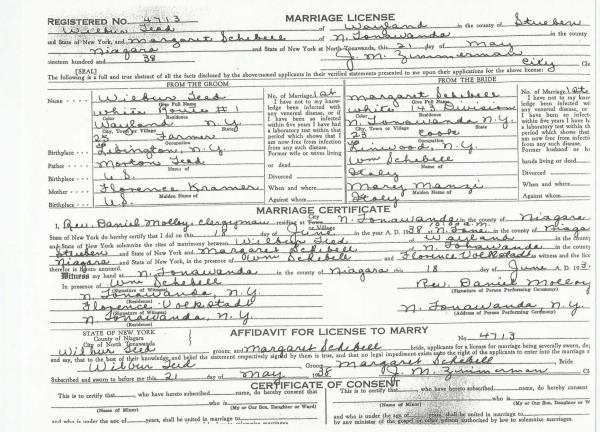 MARRIAGE LICENSE
REGISTERED No. 4713
Wilbur Tead of Wayland in the county of Steuben
and State of New York, and Margaret Schebell of N. Tonawanda in the county
Niagara and State of New York at North Tonawanda, this 21 day of May
nineteen hundred and 38 J. M. Zimmerman
[SEAL] City Cle
The following is a full and true abstract of all the facts disclosed by the above-named applicants in their verified statements presented to me upon their applications for the above license:
FROM THE GROOM
FROM THE BRIDE
Name Wilbur Tead
Full Name
white Route #1
Color Residence
Wayland N.Y.
City, Town or Village State
25 Farmer
Occupation
Birthplace N.Y.
Father Morton Tead
Name of
Birthplace U.S.
Mother Florence Kramer
Maiden Name of
Birthplace U.S.
No. of Marriage 1st
I have not to my knowledge been infected with any venereal disease, or if I have been so infected within five years I have had a laboratory test within that period which shows that I am now free from infection from any such disease.
Former wife or wives living
or dead
Divorced
When and where
Against whom
Margaret Schebell
Give Full Name
white 143 Division
Color Residence
N. Tonawanda N.Y.
City, Town or Village State
28 Cook
Occupation
Linwood, N.Y.
Wm Schebell
Name of
Italy
Mary Manzi
Maiden Name of
Italy
No. of Marriage 1st
I have not to my
Former husband or
bands living or dead
Divorced
When and where
Against whom
MARRIAGE CERTIFICATE
I, Rev. Daniel Molloy, clergyman residing at N. Tonawanda in the county of Niagara
State of New York do hereby certify that I did on this 18 day of June in the year A. D. 1938, at
State of New York solemnize the rites of matrimony between Wilbur Tead of Wayland in the county of
Steuben and State of New York and Margaret Schebell of N. Tonawanda in the county of
Niagara and State of New York in the presence of Wm Schebell and Florence Volkstadt as witness and the lice
therefor is hereto annexed.
Witness my hand at N. Tonawanda in the county of Niagara this 18 day of June A. D. 193
In presence of Wm Schebell Rev. Daniel Molloy
(Signature of Witness) (Signature of Person Performing Ceremony)
N. Tonawanda, N.Y.
(Residence)
Florence Volkstadt N. Tonawanda, N.Y.
(Signature of Witness) (Address of Person Performing Ceremony)
N. Tonawanda, N.Y.
(Residence)
AFFIDAVIT FOR LICENSE TO MARRY
STATE OF NEW YORK
County of Niagara
City of North Tonawanda
No. 4713
Wilbur Tead groom; and Margaret Schebell bride, applicants for a license for marriage being severally sworn, de
and say, that to the best of their knowledge and belief the statement respectively signed by them is true, and that no legal impediment exists as to the right of the applicants to enter into the marriage s
Wilbur Tead Groom Margaret Schebell Bride
Subscribed and sworn to before me this 21 day of May 38 J. M. Zimmerman Cl
CERTIFICATE OF CONSENT
This is to certify that, who have hereto subscribed name, do hereby consent that
who is
(Name of Minor) (My or Our Son, Daughter or Ward)
and who is under the age of years, shall be united in marriage to
This is to certify that, who have hereto subscribed name, do hereby consent
who is
(Name of Minor) (My or Our Son, Daughter or W
and who is under the age of years, shall be united in marriage to
by any minister of the gospel or other person authorized by law to solemnize marriages.